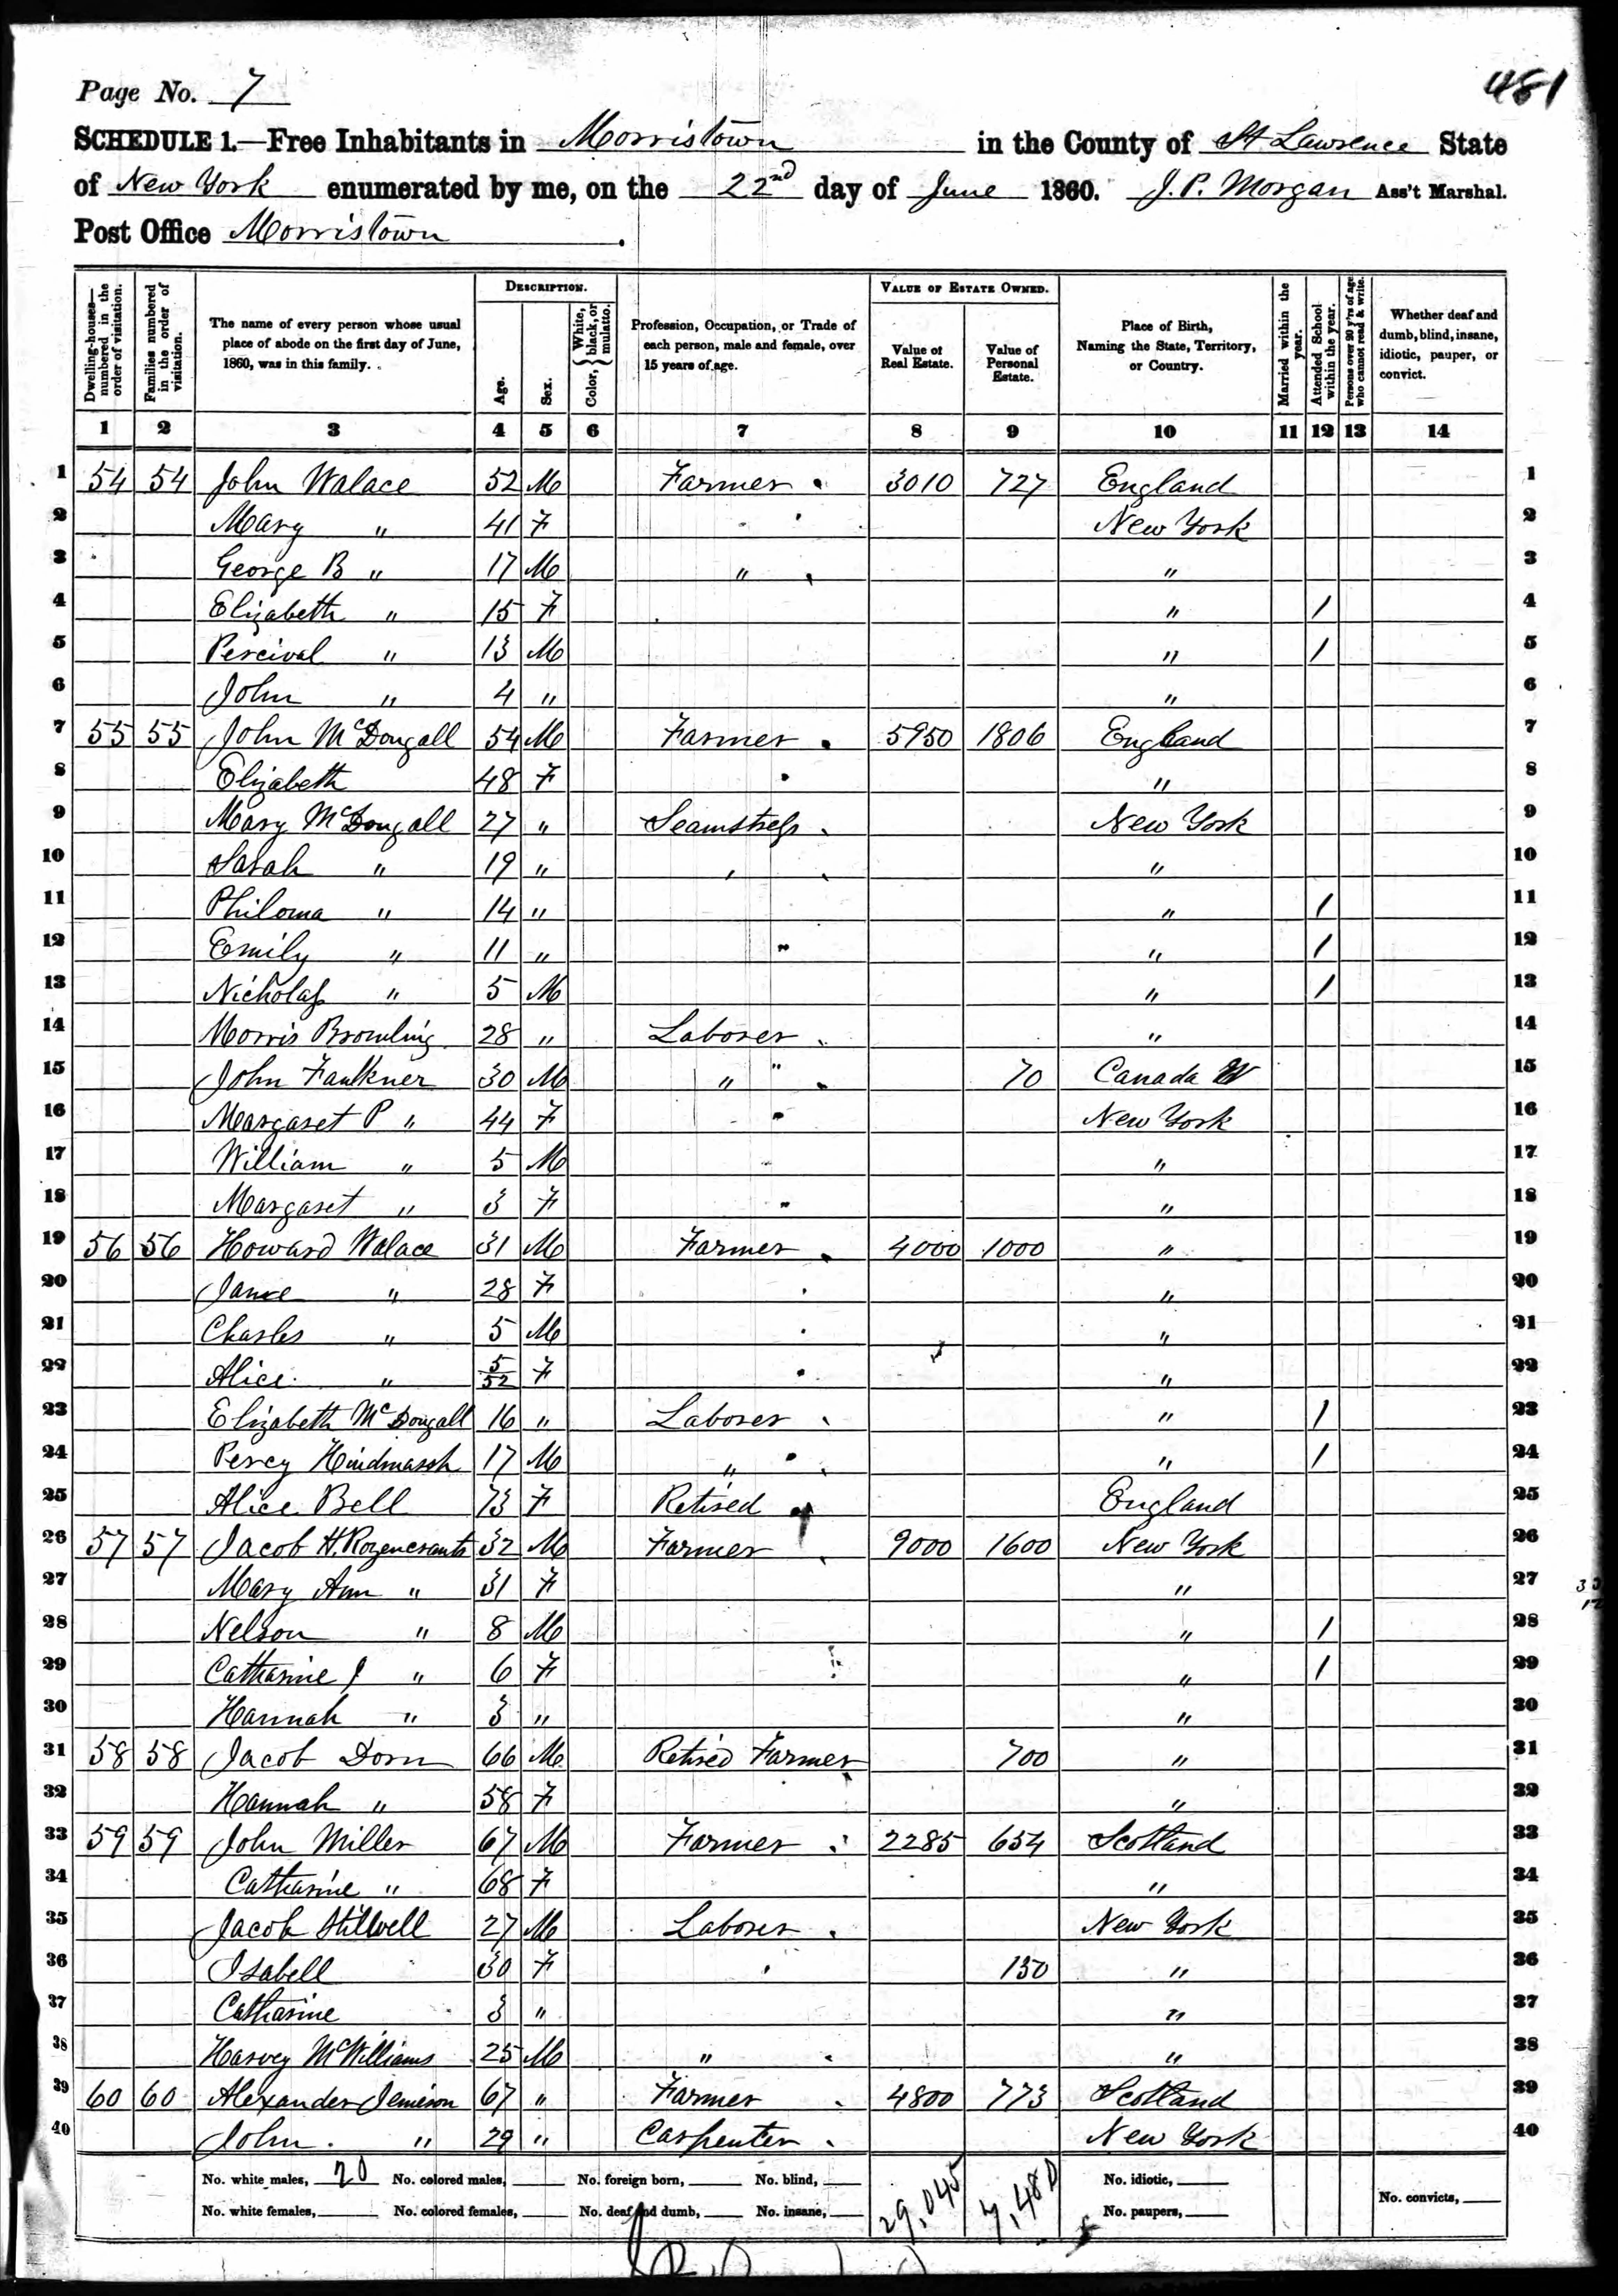 Page No. 7
481
SCHEDULE 1.—Free Inhabitants in Morristown in the County of St Lawrence State
of New York enumerated by me, on the 22nd day of June 1860. J. P. Morgan Ass't Marshal.
Post Office Morristown.
Dwelling-houses—numbered in the order of visitation.
Families numbered in the order of visitation.
The name of every person whose usual place of abode on the first day of June, 1860, was in this family.
DESCRIPTION.
Age.
Sex.
Color, } White, black, or mulatto.
Profession, Occupation, or Trade of each person, male and female, over 15 years of age.
VALUE OF ESTATE OWNED.
Value of Real Estate.
Value of Personal Estate.
Place of Birth, Naming the State, Territory, or Country.
Married within the year.
Attended School within the year.
Persons over 20 y'rs of age who cannot read & write.
Whether deaf and dumb, blind, insane, idiotic, pauper, or convict.
1 2 3 4 5 6 7 8 9 10 11 12 13 14
1 54 54 John Walace 52 M Farmer 3010 727 England 1
2 Mary " 41 F New York 2
3 George B " 17 M " " 3
4 Elizabeth " 15 F " / 4
5 Percival " 13 M " / 5
6 John " 4 " " 6
7 55 55 John McDougall 54 M Farmer 5950 1806 England 7
8 Elizabeth 48 F " 8
9 Mary McDougall 27 " Seamstress New York 9
10 Sarah " 19 " " 10
11 Philoma " 14 " " / 11
12 Emily " 11 " " / 12
13 Nicholas " 5 M " / 13
14 Morris 28 " Laborer " 14
15 John Faulkner 30 M " 70 Canada W 15
16 Margaret P " 44 F New York 16
17 William " 5 M " 17
18 Margaret " 3 F " 18
19 56 56 Howard Walace 31 M Farmer 4000 1000 " 19
20 Jane " 28 F " 20
21 Charles " 5 M " 21
22 Alice " 5/52 F " 22
23 Elizabeth McDougall 16 " Laborer " / 23
24 Percy Hindmarsh 17 M " " / 24
25 Alice Bell 73 F Retired England 25
26 57 57 Jacob H. Rozencrants 32 M Farmer 9000 1600 New York 26
27 Mary Ann " 31 F " 27
28 Nelson " 8 M " / 28
29 Catharine J " 6 F " / 29
30 Hannah " 3 " " 30
31 58 58 Jacob Dorn 66 M Retired Farmer 700 " 31
32 Hannah " 58 F " 32
33 59 59 John Miller 67 M Farmer 2285 654 Scotland 33
34 Catharine " 68 F " 34
35 Jacob Stillwell 27 M Laborer New York 35
36 Isabell 30 F 150 " 36
37 Catharine 3 " " 37
38 Harvey McWilliams 25 M " " 38
39 60 60 Alexander Jemieson 67 " Farmer 4800 773 Scotland 39
40 John " 29 " Carpenter New York 40
No. white males, 20 No. colored males, No. foreign born, No. blind, 29,045 7,480 No. idiotic,
No. white females, No. colored females, No. deaf and dumb, No. insane, No. paupers, No. convicts,